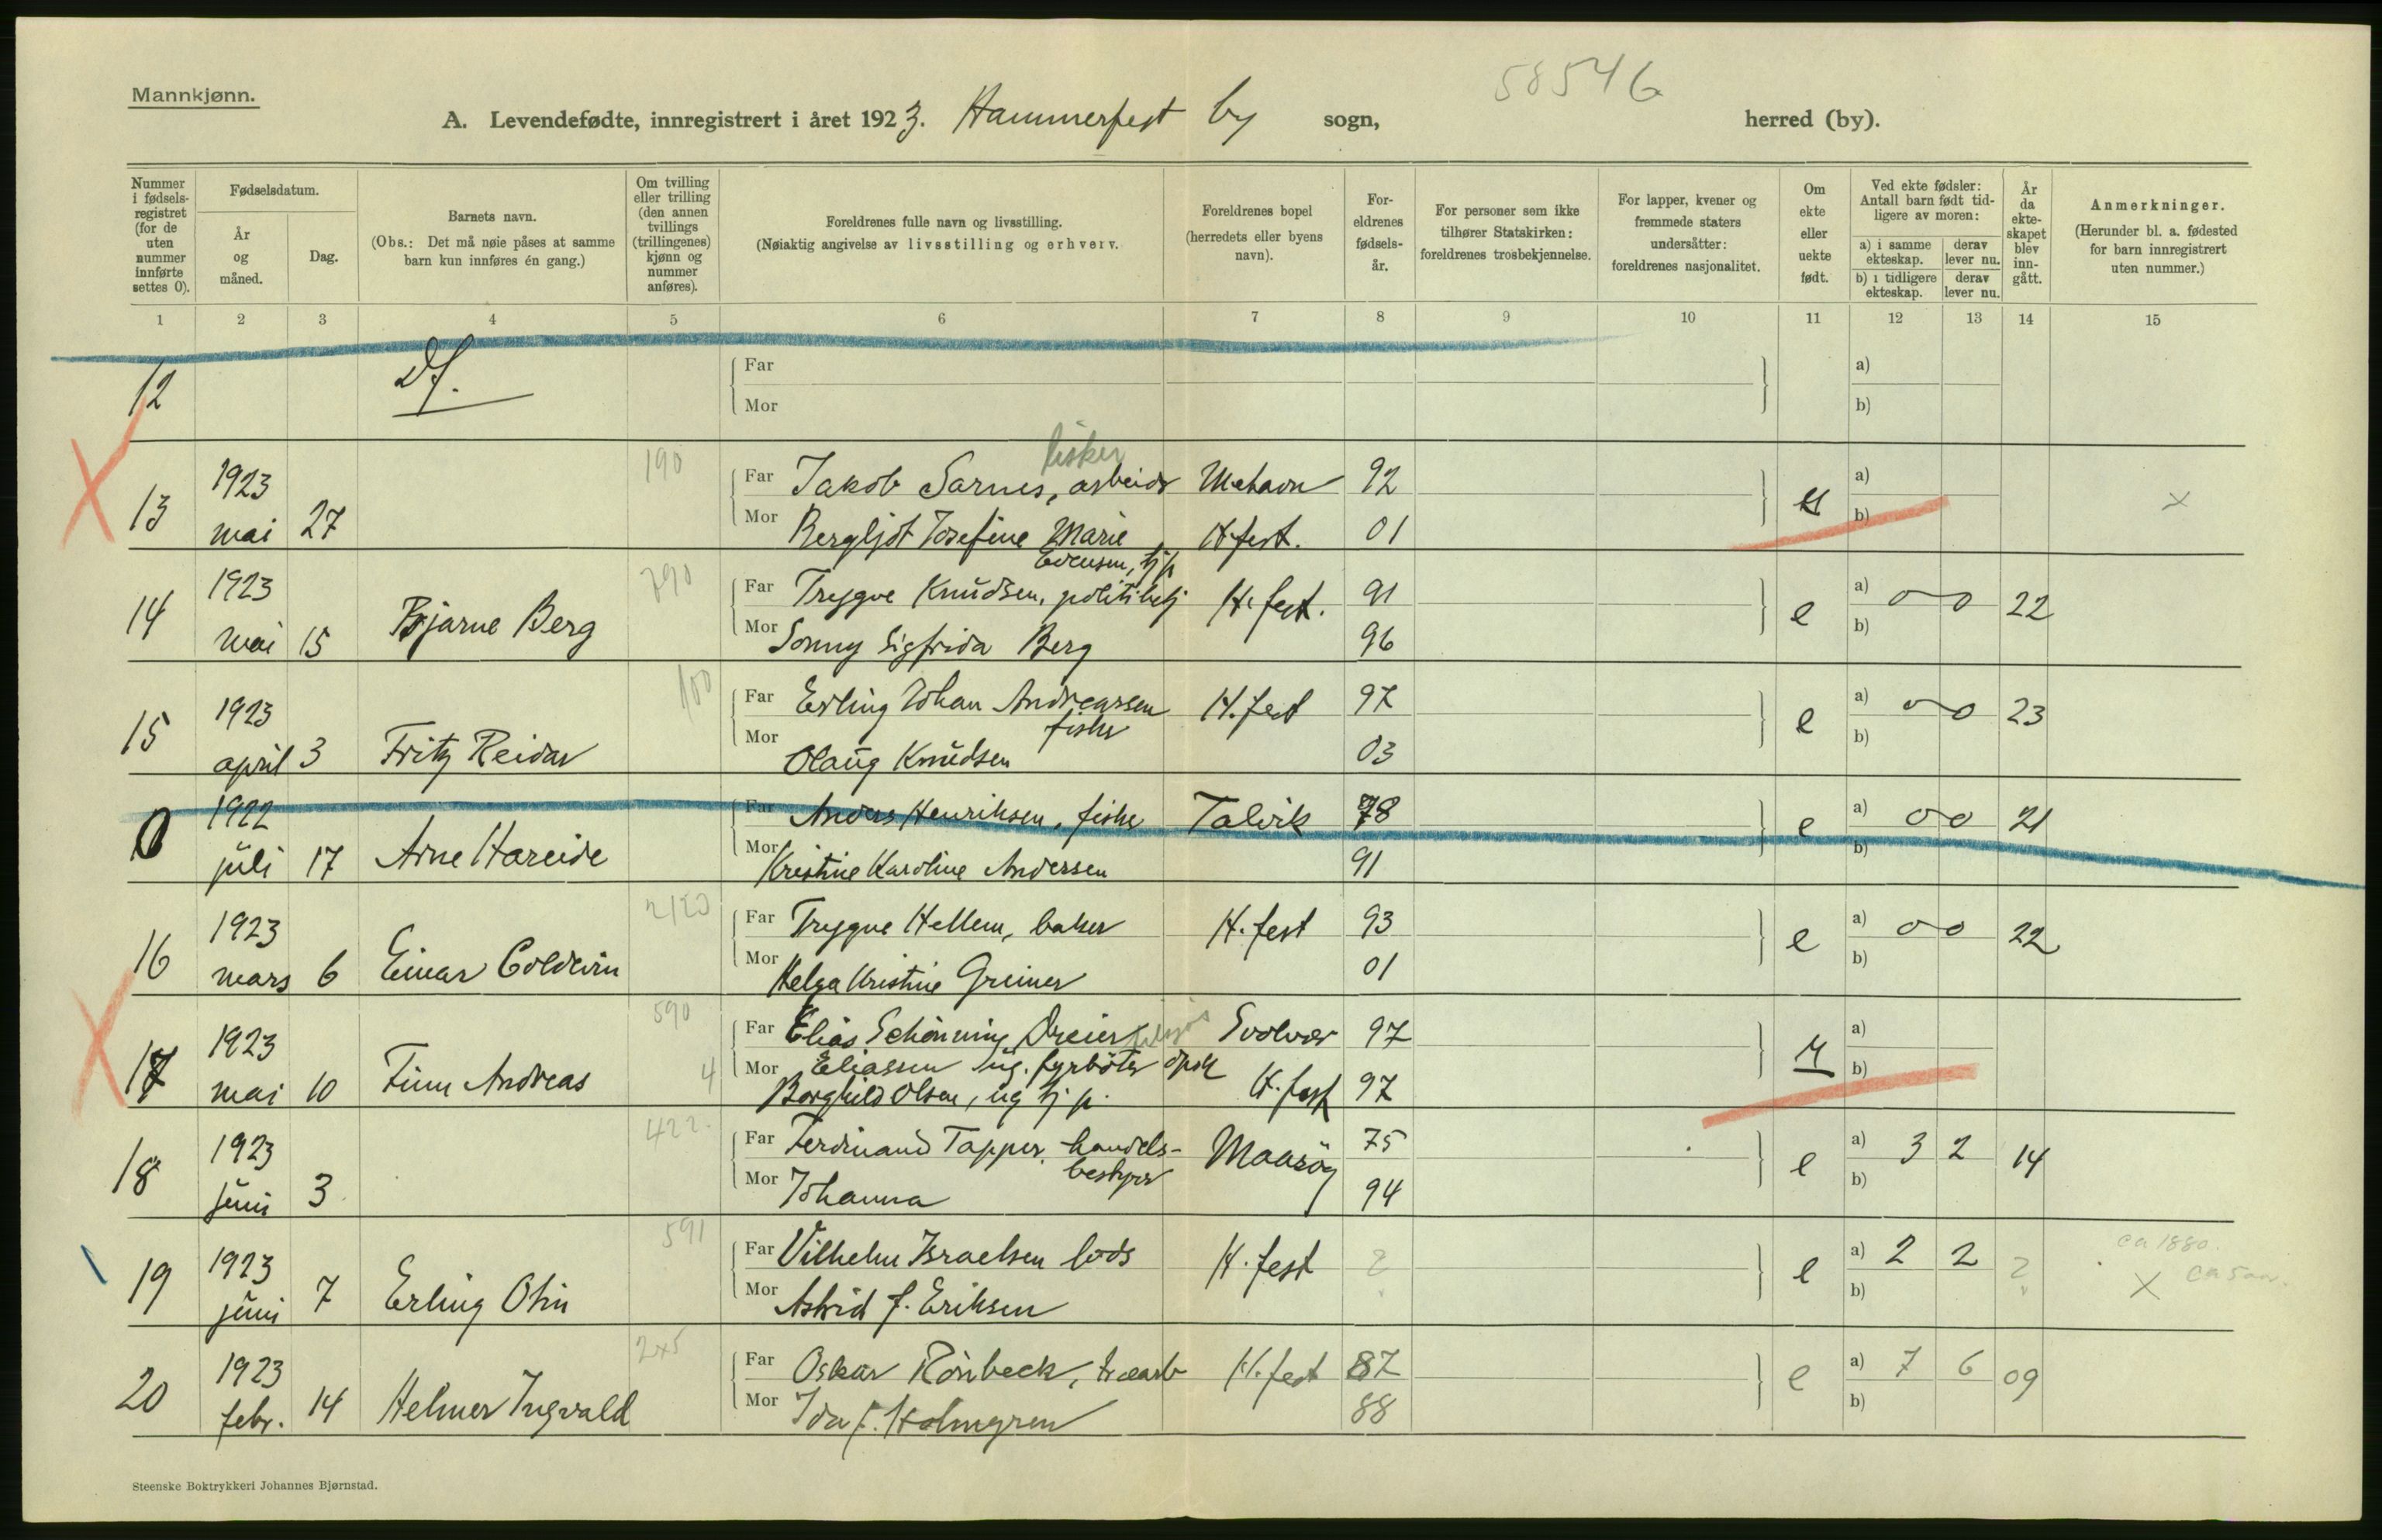 58546
Mannkjønn.
A. Levendefødte, innregistrert i året 1923. Hammerfest by sogn, herred (by).
Nummer i fødsels-registret (for de uten nummer innførte settes 0).
Fødselsdatum.
År og måned.
Dag.
Barnets navn.
(Obs.: Det må nøie påses at samme barn kun innføres én gang.)
Om tvilling eller trilling (den annen tvillings (trillingenes) kjønn og nummer anføres).
Foreldrenes fulle navn og livsstilling.
(Nøiaktig angivelse av livsstilling og erhverv.
Foreldrenes bopel (herredets eller byens navn).
For-eldrenes fødsels-år.
For personer som ikke tilhører Statskirken: foreldrenes trosbekjennelse.
For lapper, kvener og fremmede staters undersåtter: foreldrenes nasjonalitet.
Om ekte eller uekte født.
Ved ekte fødsler: Antall barn født tid-ligere av moren:
a) i samme ekteskap.
derav lever nu.
b) i tidligere ekteskap.
derav lever nu.
År da ekte-skapet blev inn-gått.
Anmerkninger.
(Herunder bl. a. fødested for barn innregistrert uten nummer.)
1 2 3 4 5 6 7 8 9 10 11 12 13 14 15
12 Df. Far a)
Mor b)
190 fisker
1923 Far Jakob Sarnes, arbeider Mehavn 92 a)
13 mai 27 Mor Bergljot Josefine Marie H.fest. 01 u b) x
Evensen, tj p
1923 790 Far Trygve Knudsen, politibetj H.fest. 91 a) 0 0 22
14 mai 15 Bjarne Berg Mor Sonny Sigfrida Berg 96 e b)
1923 100 Far Erling Johan Andreassen H.fest 97 a) 0 0 23
fisker
15 april 3 Fritz Reidar Mor Olaug Knudsen 03 e b)
1922 Far Anders Henriksen, fisker Talvik 78 a) 0 0 21
0 juli 17 Arne Hareide Mor Kristine Karoline Andersen 91 e b)
1923 2120 Far Trygve Hellem, baker H.fest 93 a) 0 0 22
16 mars 6 Einar Coldevin Mor Helga Kristine Greiner 01 e b)
1923 590 Far Elias Schønning Dreier Svolvær 97 a)
Eliassen ug. fyrbøter
17 mai 10 Finn Andreas 4 Mor Borghild Olsen, ug tj p. H.fest 97 u b)
1923 422. Far Ferdinand Tapper, handels- Maasøy 75 a) 3 2 14
bestyrer
18 juni 3 Mor Johanna 94 e b)
1923 591 Far Vilhelm Israelsen lods H.fest ? a) 2 2 ? ca 1880.
19 juni 7 Erling Otin Mor Astrid f. Eriksen " e b) " x
1923 245 Far Oskar Rönbeck, H.fest 87 a) 7 6 09
20 febr. 14 Helmer Ingvald Mor Ida f. Holmgren 88 e b)
Steenske Boktrykkeri Johannes Bjørnstad.